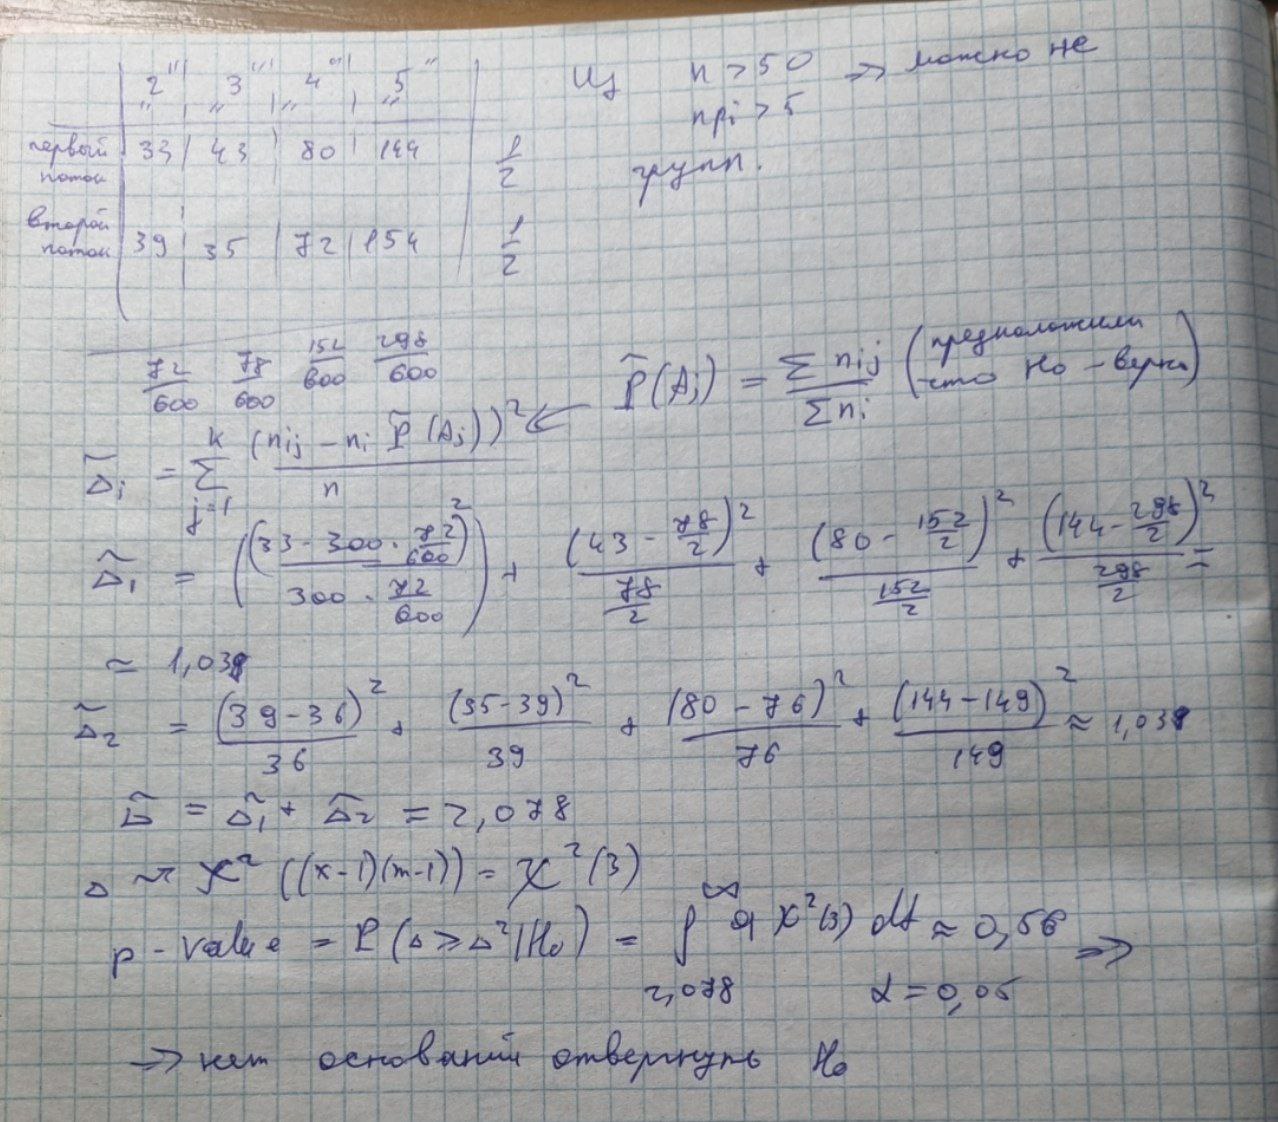 "2" "3" "4" "5"
первый поток 33 43 80 144 1/2
второй поток 39 35 72 154 1/2
72/600 78/600 152/600 298/600
Из n > 50 => можно не
npi > 5
групп.
P̃(Aj) = Σ nij / Σ ni (предположили что H₀ - верна)
Δ̃i = Σ_{j=1}^{k} (nij - ni P̃(Aj))² / n
Δ̃₁ = ((33 - 300 · 72/600)² / (300 · 72/600)) + (43 - 78/2)² / (78/2) + (80 - 152/2)² / (152/2) + (144 - 298/2)² / (298/2) =
≈ 1,039
Δ̃₂ = (39-36)²/36 + (35-39)²/39 + (80-76)²/76 + (144-149)²/149 ≈ 1,039
Δ̃ = Δ̃₁ + Δ̃₂ = 2,078
Δ ~ χ² ((k-1)(m-1)) = χ²(3)
p-value = P(Δ ≥ Δ̃ | H₀) = ∫_{2,078}^{∞} q χ²(3) dt ≈ 0,56 =>
α = 0,05
=> нет оснований отвергнуть H₀